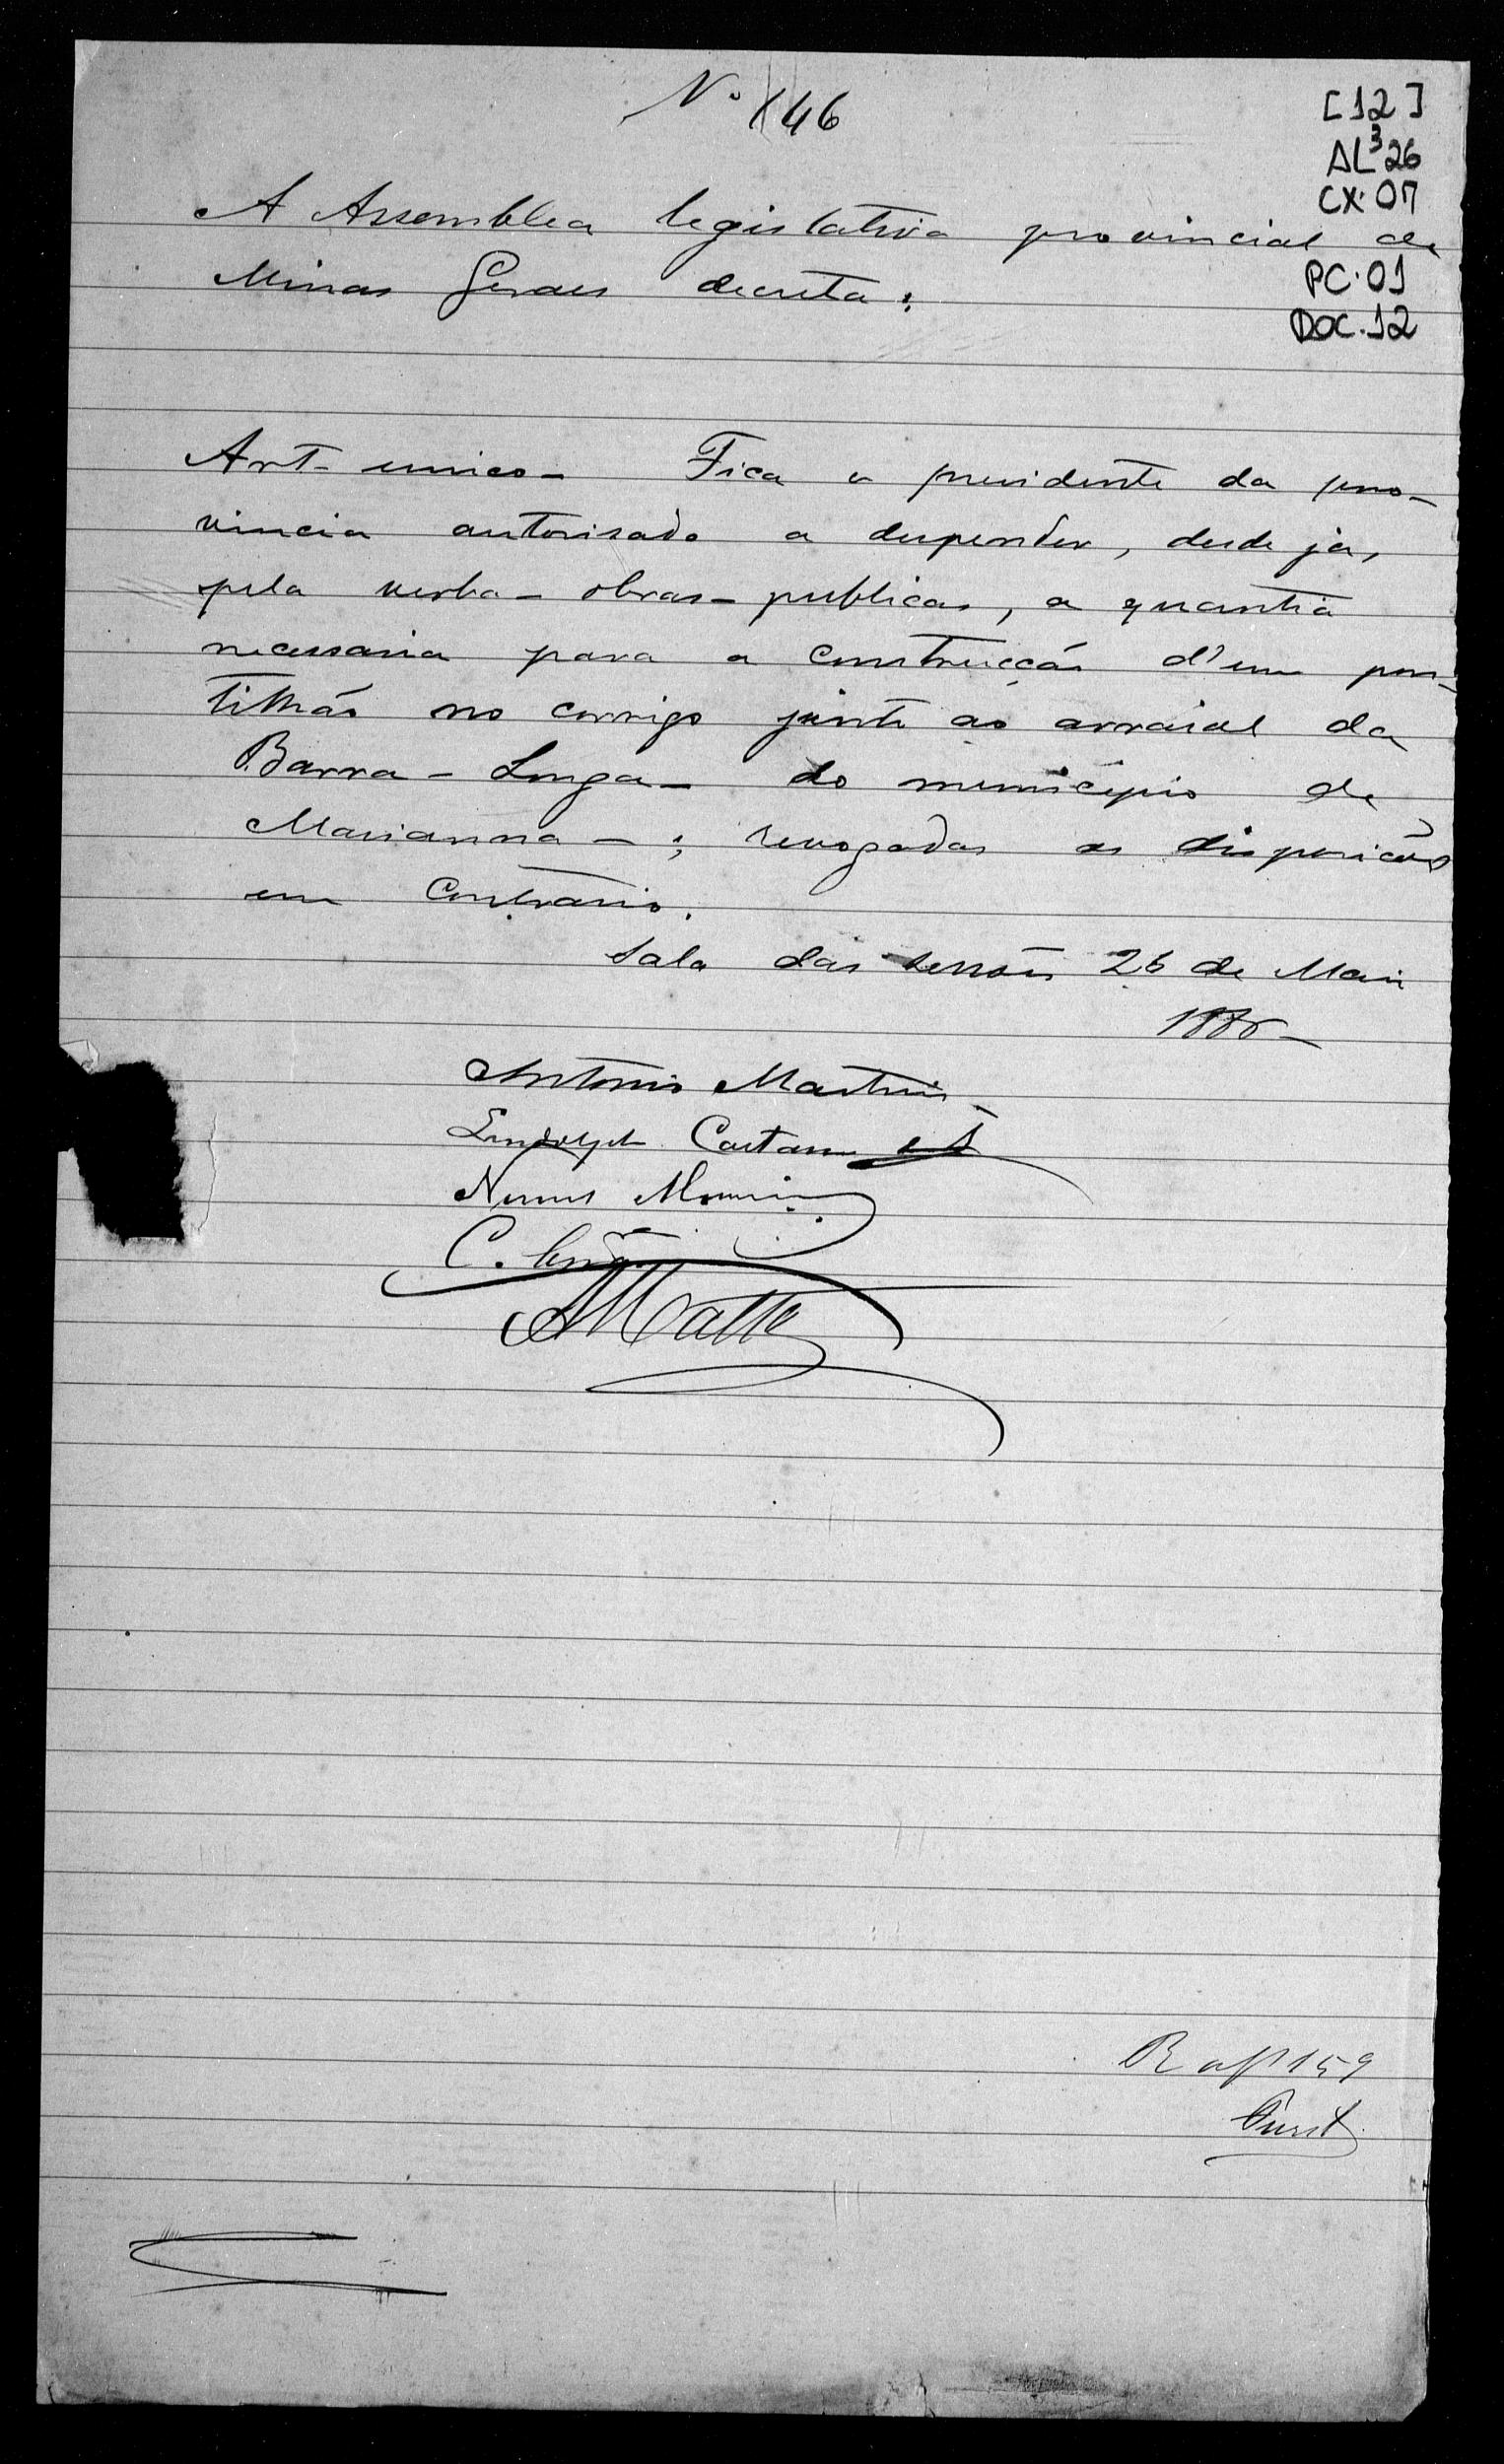 Nº 146
[12]
AL³26
CX. 07
PC. 01
DOC. 12
A Assemblea legislativa provincial de
Minas Geraes decreta:
Art. unico - Fica o presidente da pro-
vincia autorisado a despender, desde já,
pela verba - obras - publicas, a quantia
necessaria para a construcção d'um pon-
tilhão no corrigo junto ao arraial da
Barra - Longa - do municipio de
Marianna - ; revogadas as disposições
em contrario.
Sala das sessões 26 de Maio
Antonio Martins
Lindolpho Caetano
Nunes
C.
R af 159